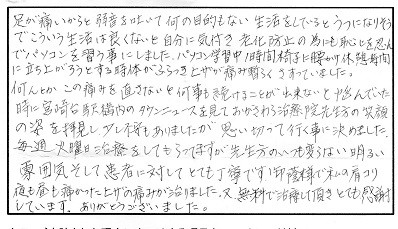 足が痛いからと弱音を吐いて何の目的もない生活をしているとうつになりそう
でこういう生活は良くないと自分に気付き老化防止の為にも恥を忍ん
でパソコンを習う事にしました。パソコン学習中1時間椅子に腰かけ休憩時間
に立ち上がろうとする時体がふらつき上ザが痛み驚くきっていました。
何んとかこの痛みを直さないと何事も続けることが出来ないと悩んでいた
時に宮崎台駅構内のタウンニュースを見ておかざわ治療院先生方の笑顔
の姿を拝見し少し不安もありましたが思い切って行く事に決めました。
毎週火曜日治療をしてもらってますが先生方のいつも変らない明るい
雰囲気そして患者に対してとても丁寧です。御蔭様で私の肩コリ
夜も昼も痛かった上ザの痛みが治りました。又無料で治療して頂きとても感謝
しています。ありがとうございました。